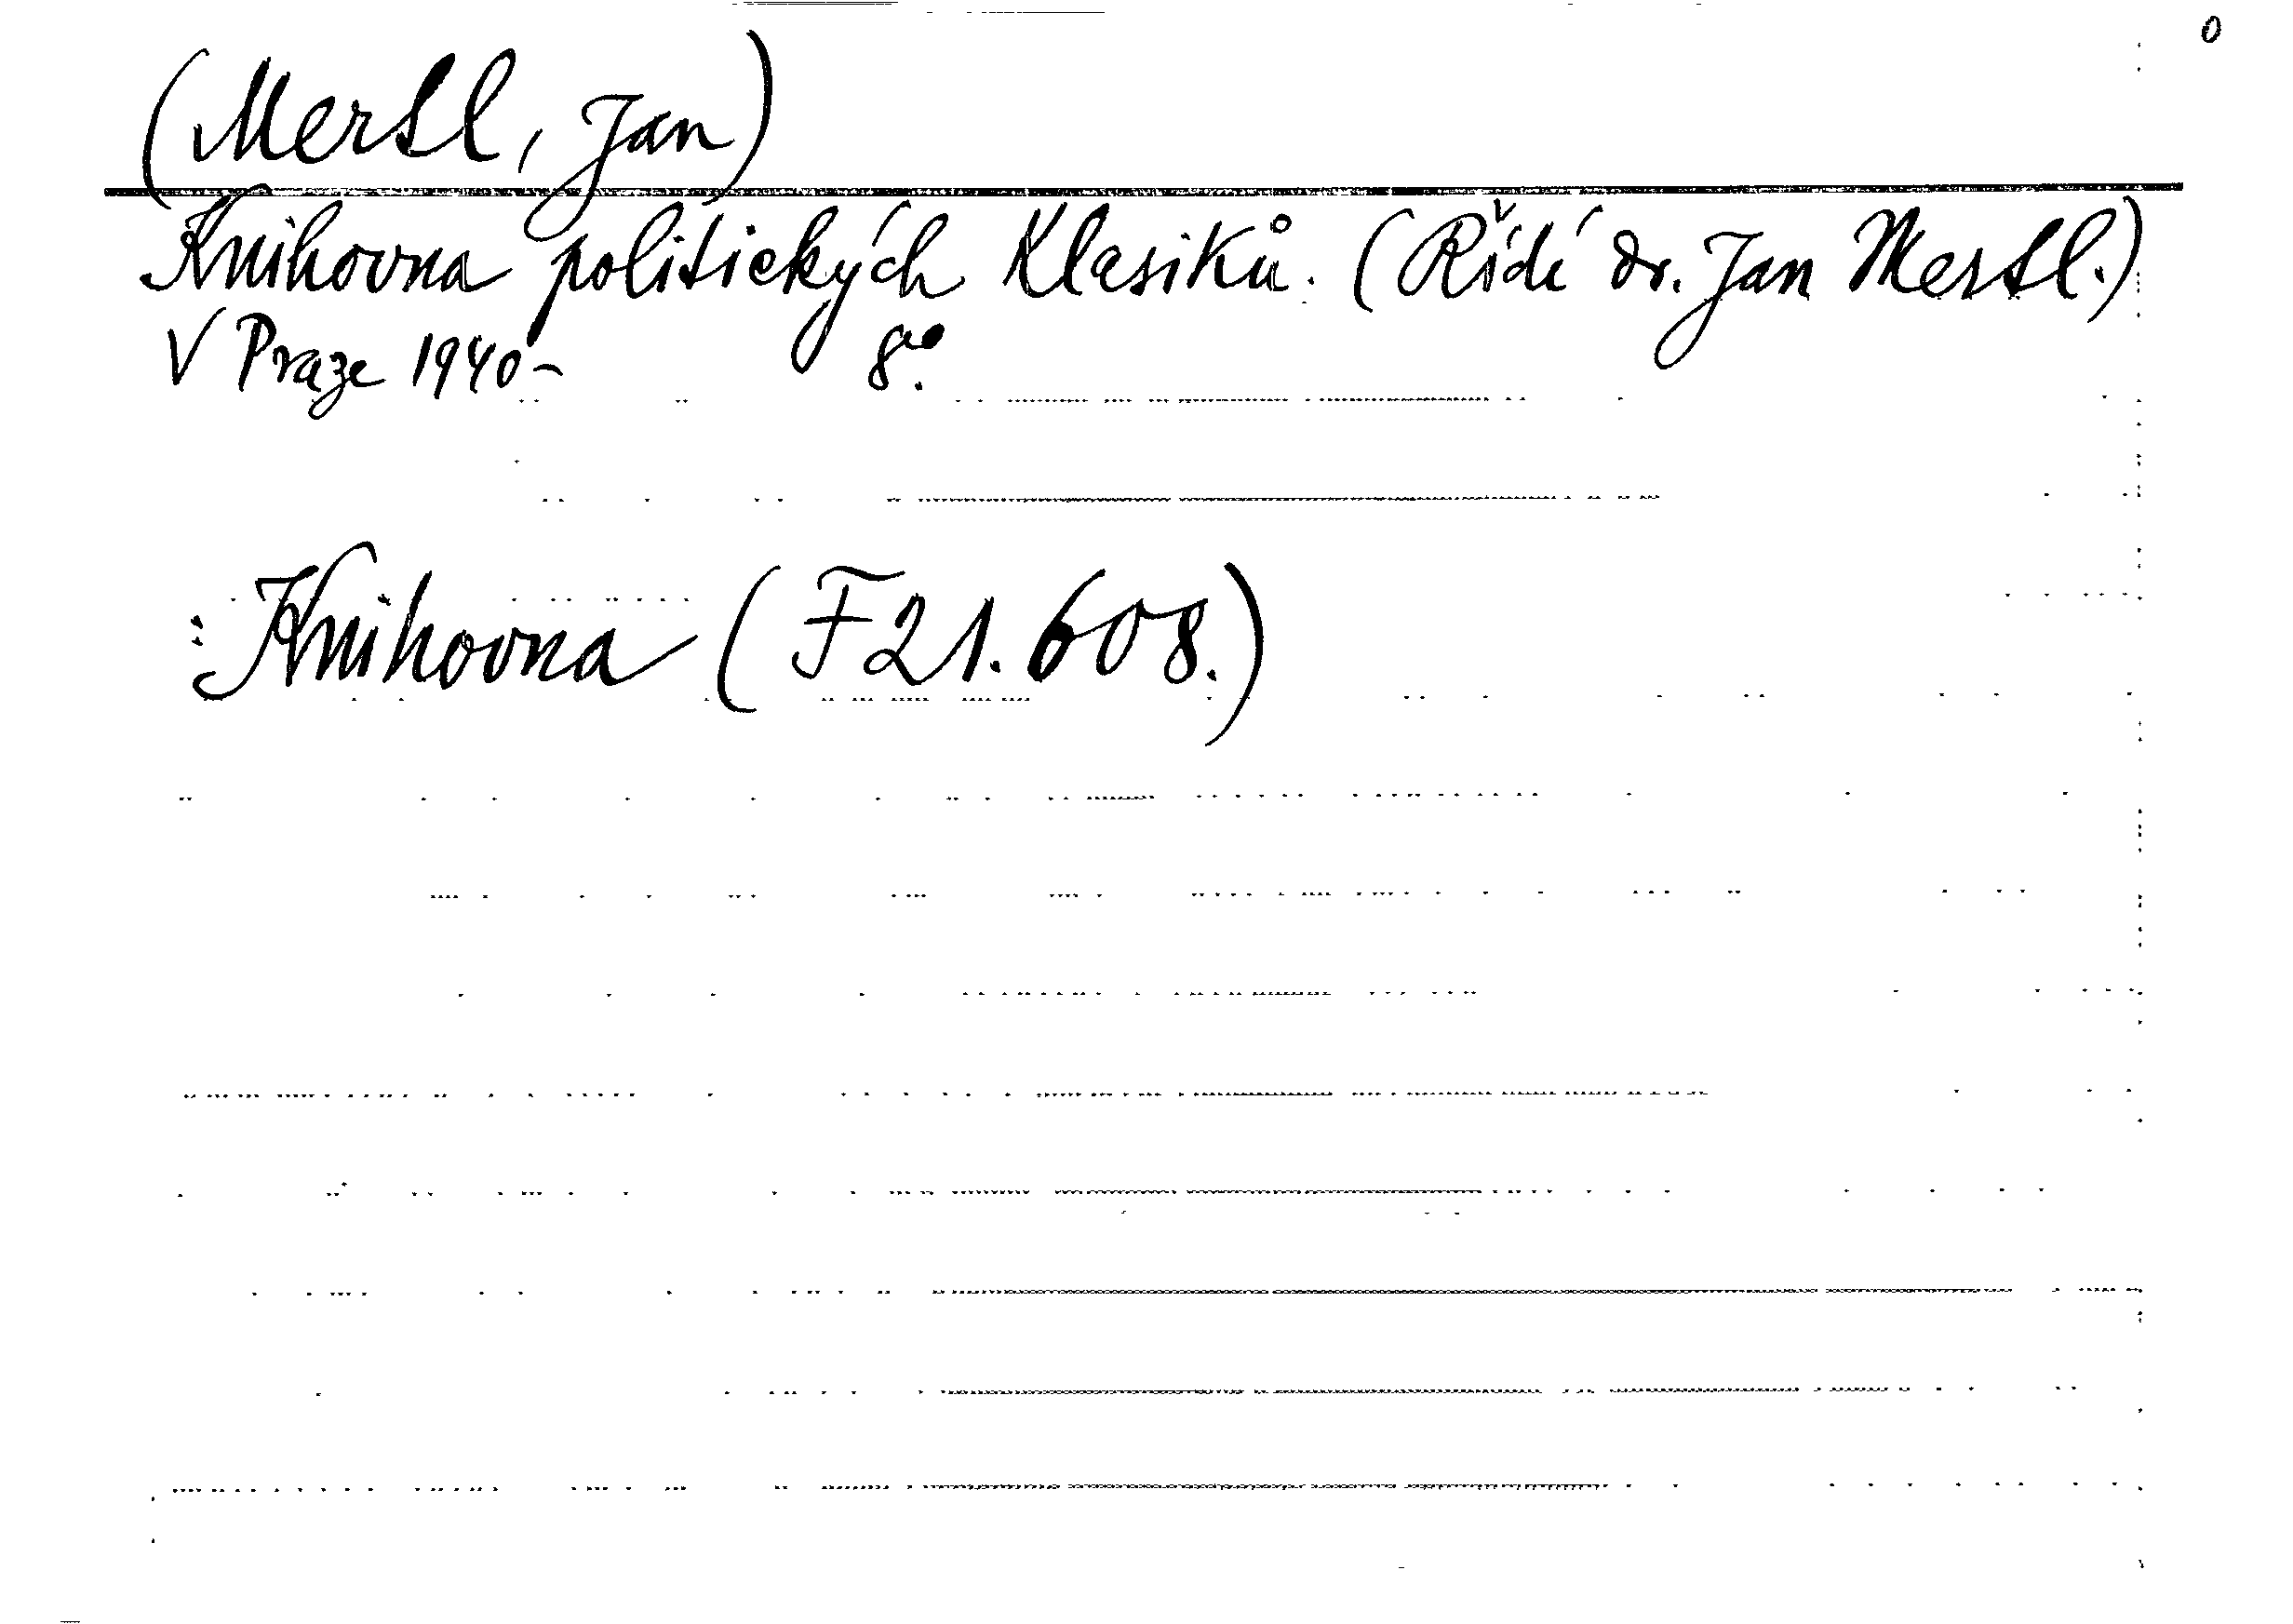 0
(Mertl, Jan)
Knihovna politických klasiků. (Řídí dr. Jan Mertl.)
V Praze 1940- 8°.
: Knihovna (F 21.608.)